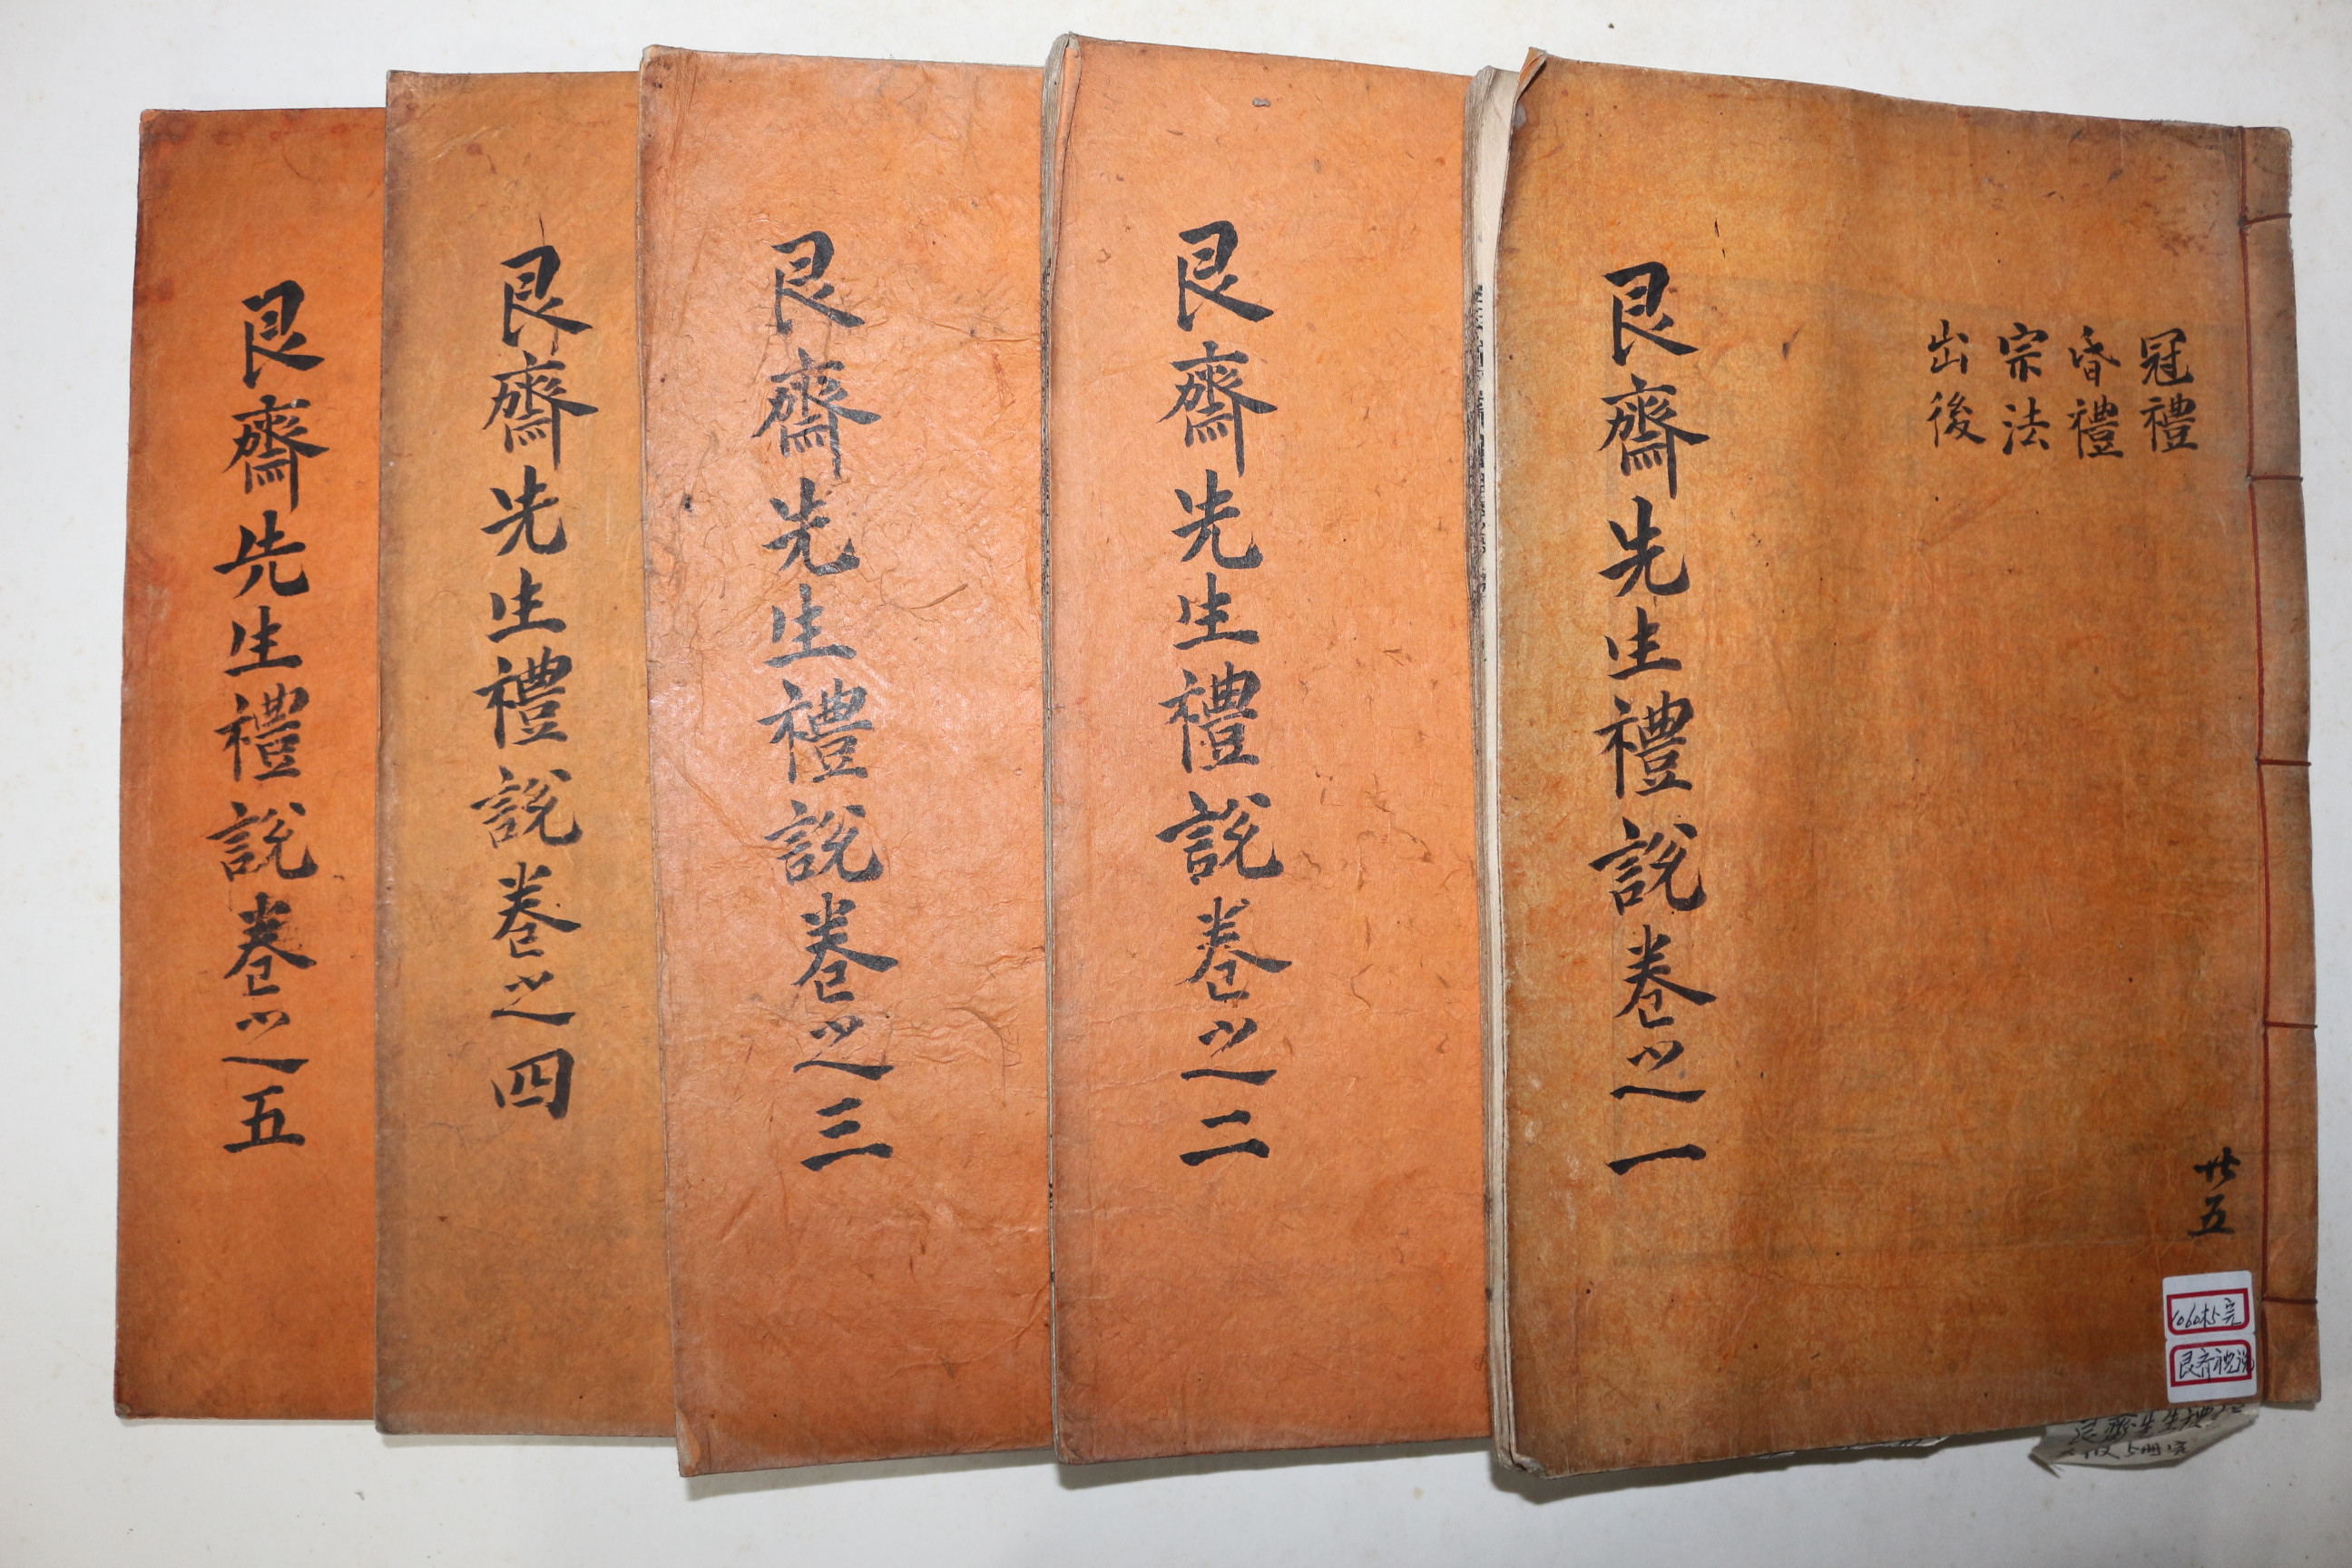 冠禮
昏禮
宗法
出後
艮齋先生禮說卷之一
廿五
艮齋禮說
艮齋先生禮說卷之二
艮齋先生禮說卷之三
艮齋先生禮說卷之四
艮齋先生禮說卷之五